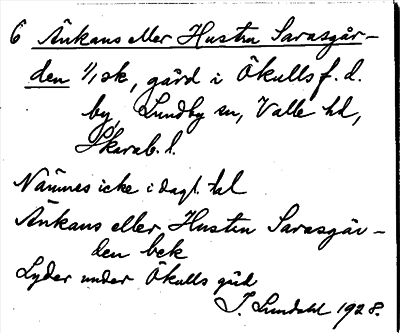 6 Änkans eller Hustru Sarasgår-
den 1/1 sk, gård i Ökulls f. d.
by, Lundby sn, Valle hd,
Skarab. l.
Nämnes icke i dagl. tal
Änkans eller Hustru Sarasgår-
den bek
Lyder under Ökulls gård
J. Lundahl 1928.